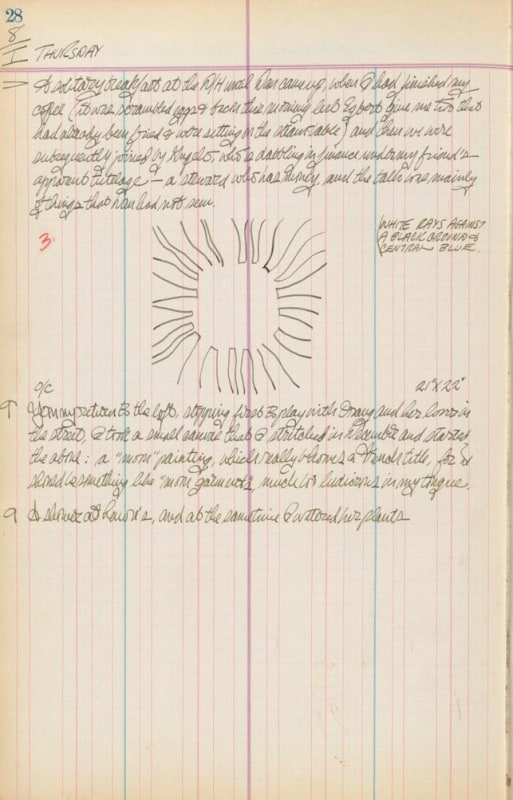 28
8
I THURSDAY
A solitary breakfast at the MH until Dan came up, when I had finished my
coffee (it was scrambled eggs & bacon this morning lest Egbert give me two that
had already been fried & were setting on the steam table) and then we were
subsequently joined by Angelo, who is dabbling in finance under my friend's
apparent tutelage — a steward who has money and the talk was mainly
of things that Dan had not seen.
3.
WHITE RAYS AGAINST
A BLACK GROUND &
CENTRAL BLUE
o/c
21" X 22"
¶ Upon my return to the loft, stopping first to play with and her in
the street, I took a small canvas that I stretched in December and started
the above: a "mom" painting, which really a French title, for
should be something like "mon, much too ludicrous in my tongue.
¶ A shower at 's, and at the same time I watered her plants